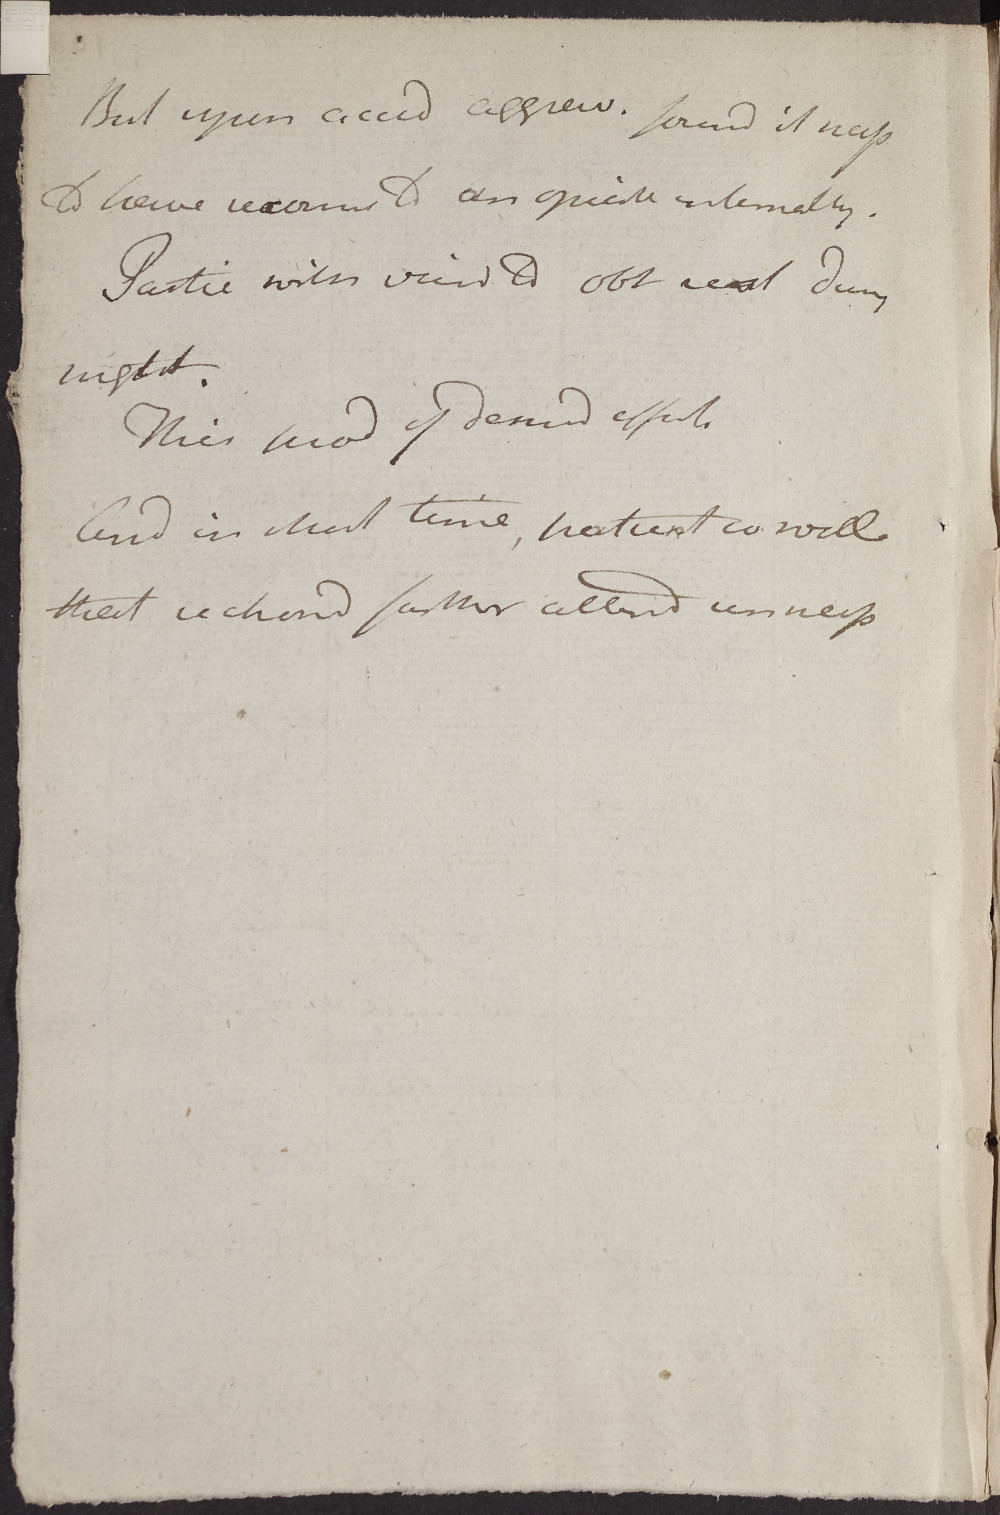 But upon accid aggrav. found it necess
to have recourse to an opiate internally.
Partic with view to obt rest dury
night.
This prod ye desired effect.
And in short time, patient so well
that rechond farther attend unnecess